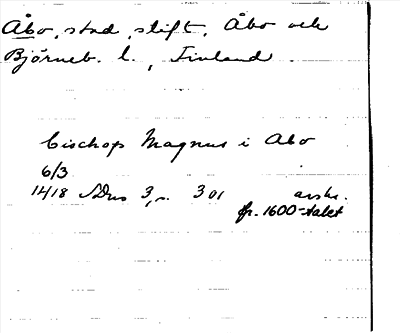 Åbo, stad, stift, Åbo och
Björneb. l., Finland
bischop Magnus i Abo
6/3
1418 SDns 3, s. 301 avskr.
fr. 1600-talet